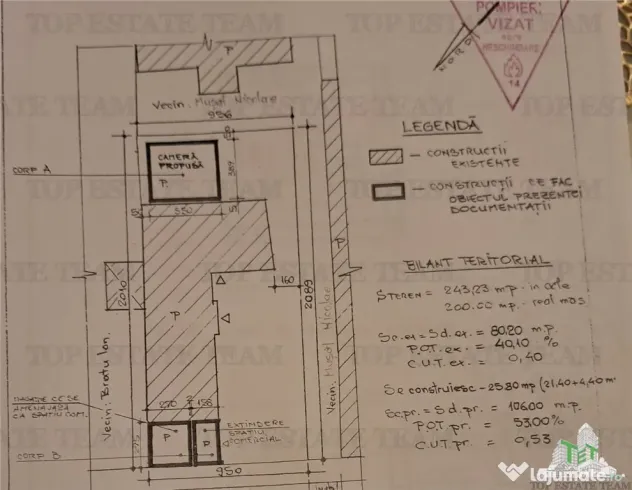 TOP ESTATE TEAM
POMPIERI
VIZAT
NESCHIMBARE
14
NORD
P
Vecin. Mușat Nicolae
996
LEGENDĂ
— CONSTRUCTII
EXISTENTE
— CONSTRUCTII CE FAC
OBIECTUL PREZENTEI
DOCUMENTAȚII
CORP A
CAMERĂ
PROPUSĂ
P.
387
550
BILANT TERITORIAL
STEREN = 243,23 mp. in acte
200.00 mp. - real mas
Sc.ex. = Sd.ex. = 80.20 m.p.
P.O.T. ex. = 40,10 %
C.U.T. ex. = 0,40
Se construiesc - 25.80 mp (21,40+4,40 m
Sc.pr. = Sd.pr. = 106.00 m.p.
P.O.T. pr. = 53.00%
C.U.T. pr. = 0,53
160
2010
2089
P
P
Vecin. Bratu Ion.
Vecin. Mușat Nicolae
MAGAZIE CE SE
AMENAJAZĂ
CA SPAȚIU COM.
270
158
EXTINDERE
SPAȚIU
COMERCIAL
P
P
CORP B
950
TET
lajumate.ro
TOP ESTATE TEAM